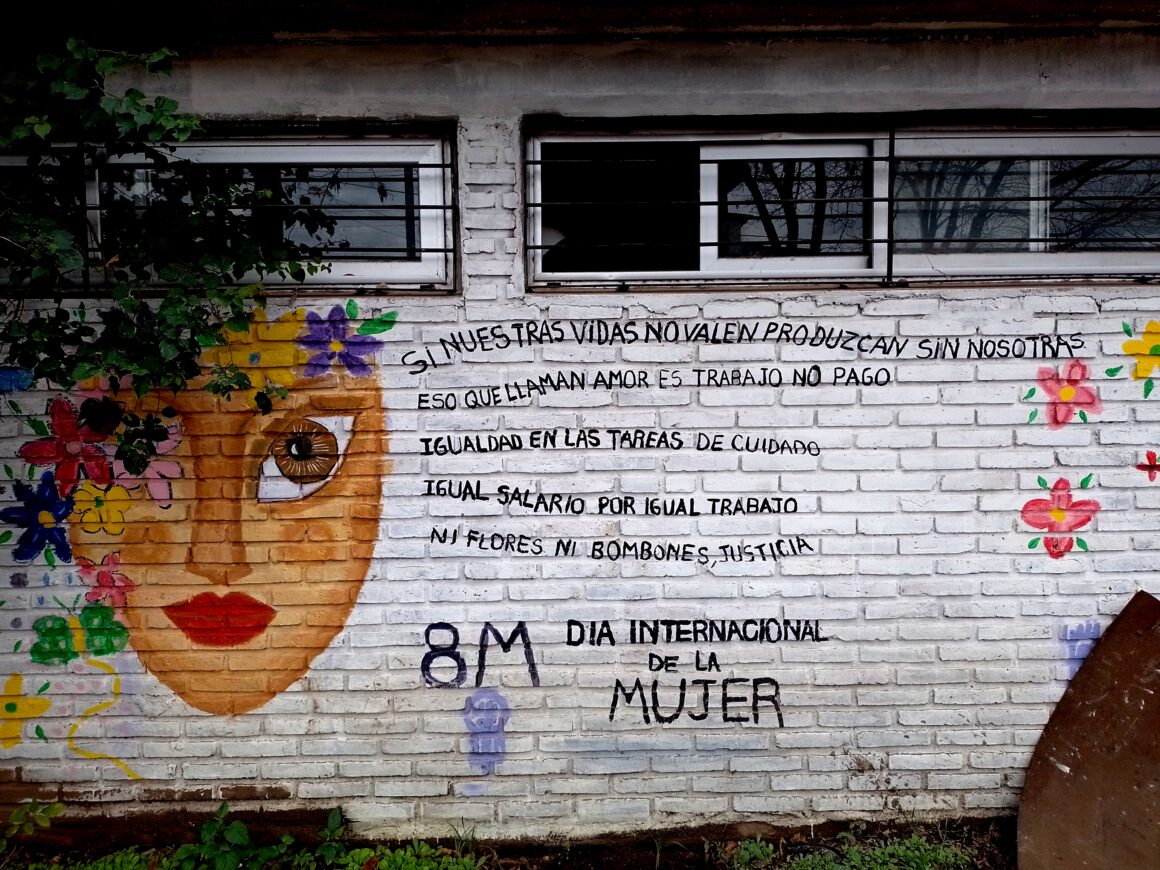 SI NUESTRAS VIDAS NO VALEN PRODUZCAN SIN NOSOTRAS
ESO QUE LLAMAN AMOR ES TRABAJO NO PAGO
IGUALDAD EN LAS TAREAS DE CUIDADO
IGUAL SALARIO POR IGUAL TRABAJO
NI FLORES NI BOMBONES, JUSTICIA
8M DIA INTERNACIONAL
DE LA
MUJER